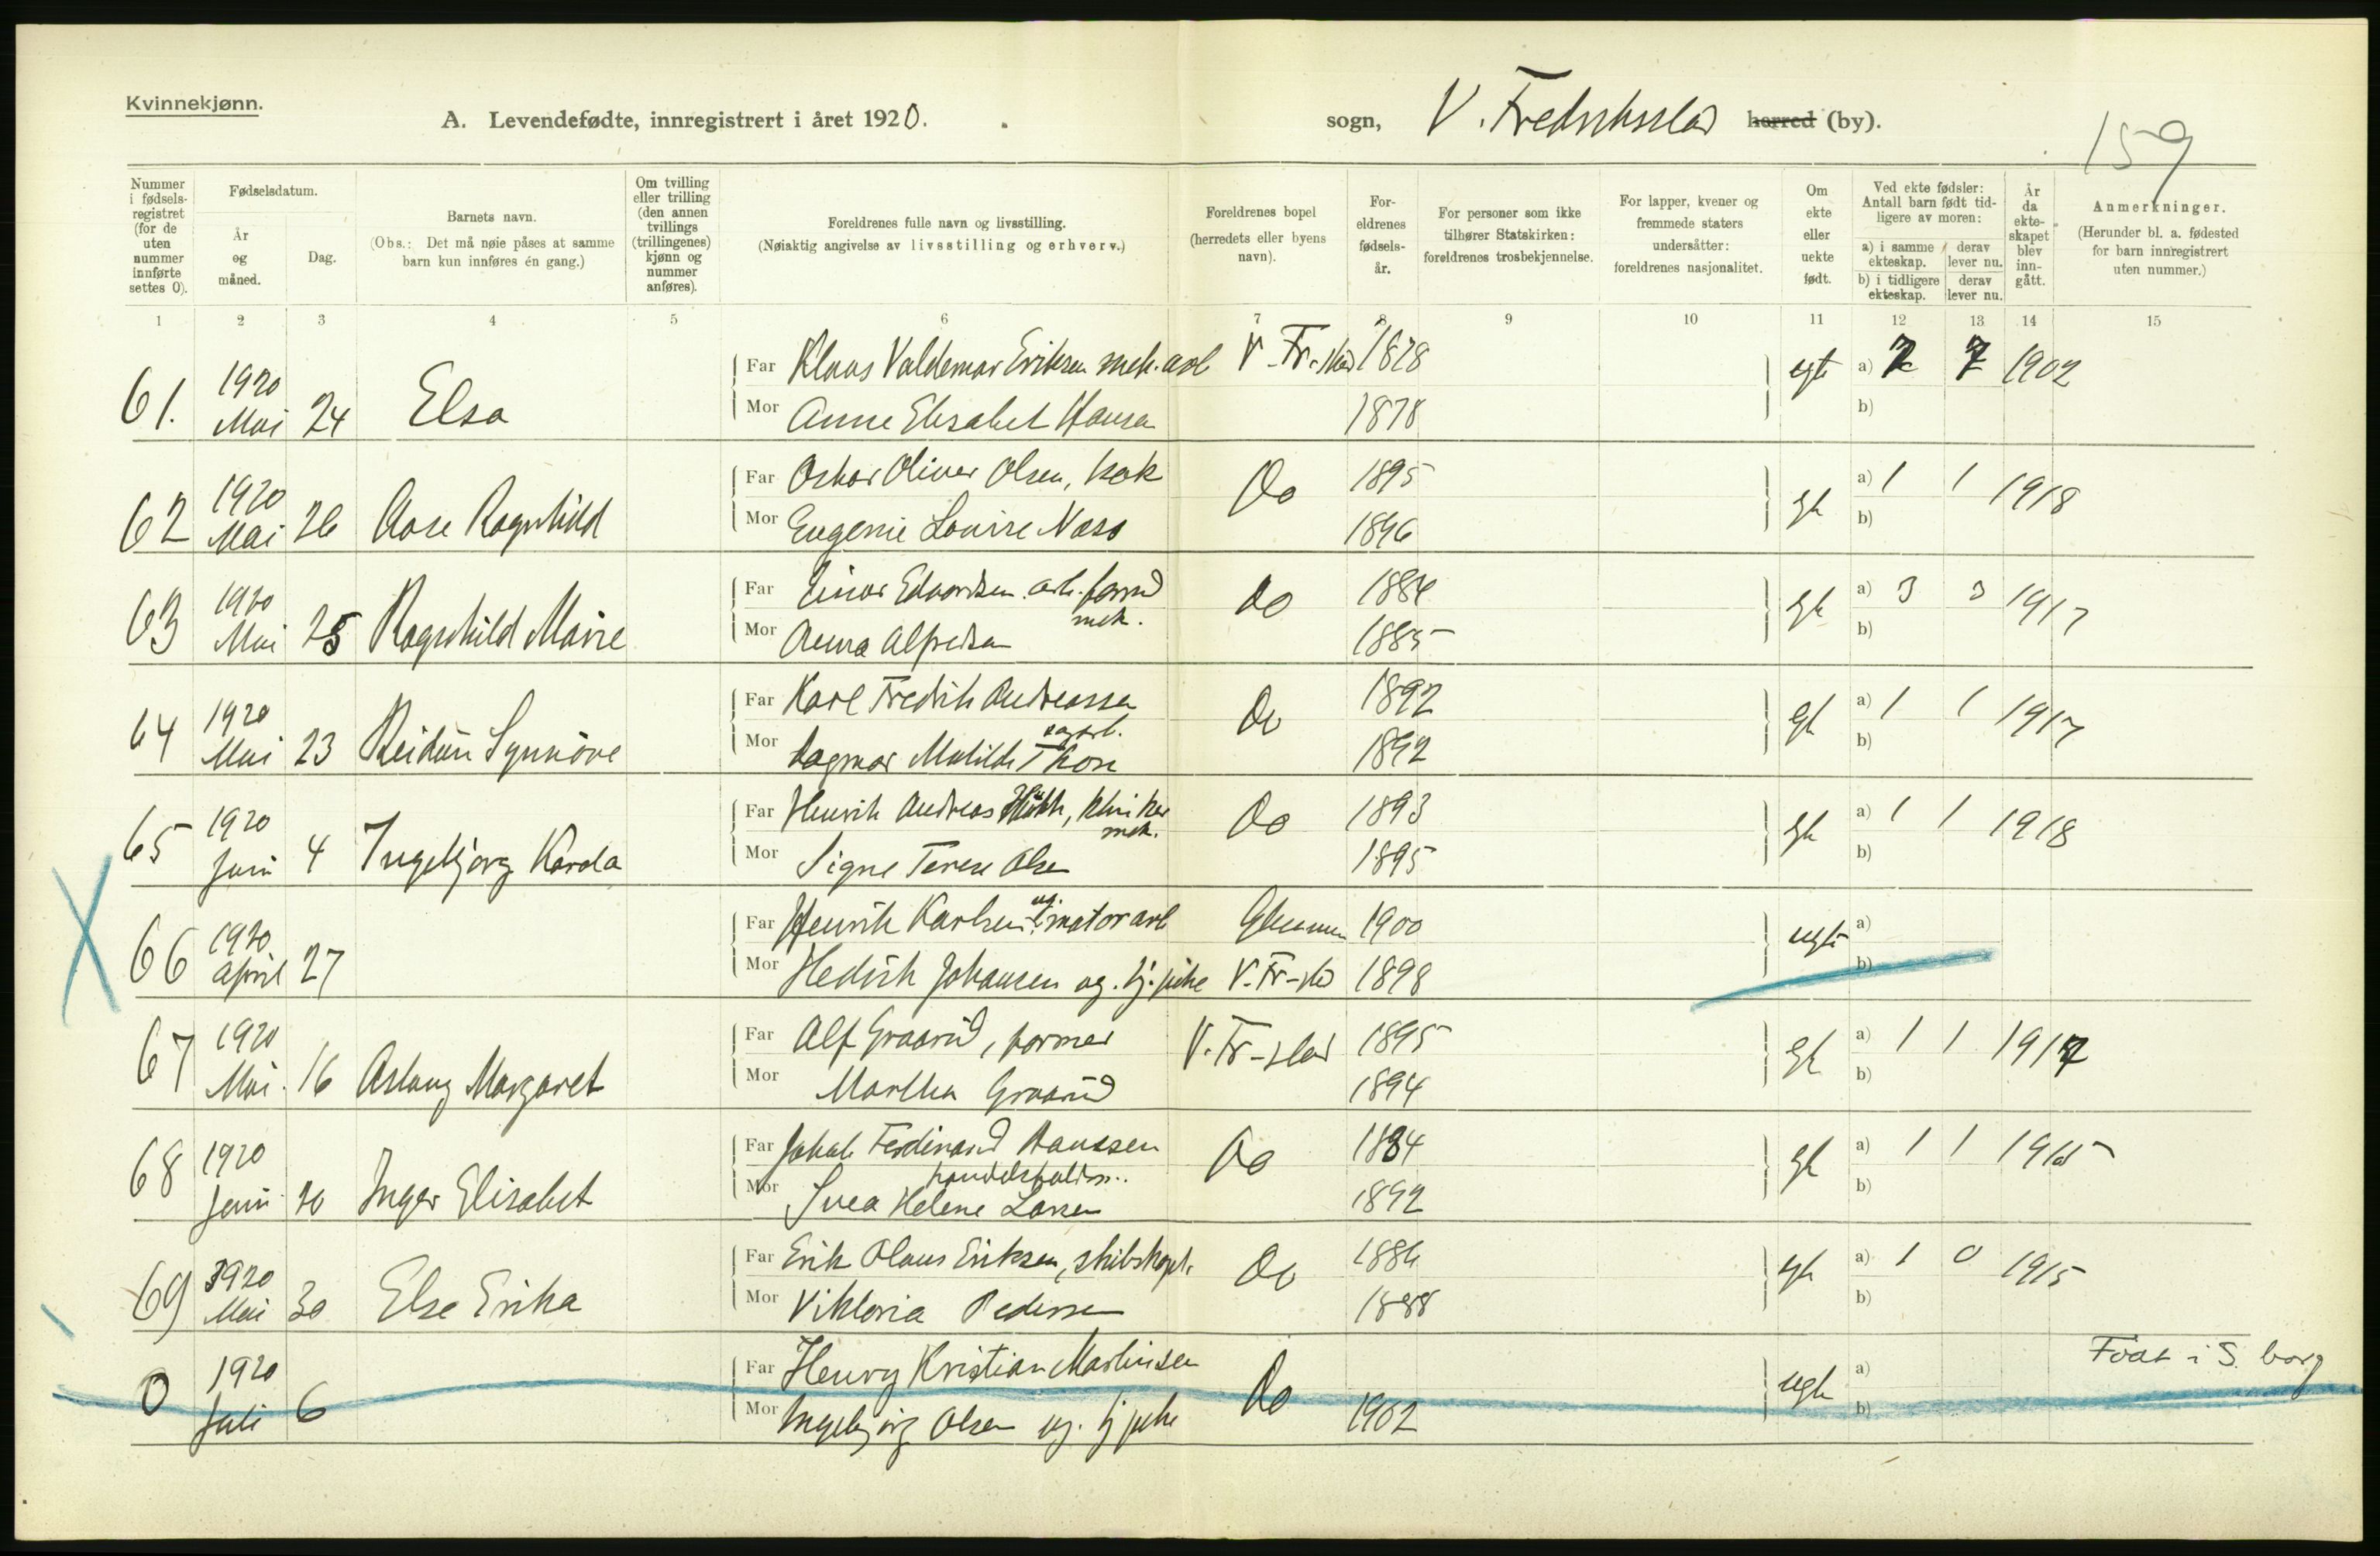 Kvinnekjønn.
A. Levendefødte, innregistrert i året 1920.
sogn, V. Fredrikstad herred (by).
159
Nummer i fødselsregistret (for de uten nummer innførte settes 0).
Fødselsdatum.
År og måned.
Dag.
Barnets navn.
(Obs.: Det må nøie påses at samme barn kun innføres én gang.)
Om tvilling eller trilling (den annen tvillings (trillingenes) kjønn og nummer anføres).
Foreldrenes fulle navn og livsstilling.
(Nøiaktig angivelse av livsstilling og erhverv.)
Foreldrenes bopel (herredets eller byens navn).
Foreldrenes fødselsår.
For personer som ikke tilhører Statskirken: foreldrenes trosbekjennelse.
For lapper, kvener og fremmede staters undersåtter: foreldrenes nasjonalitet.
Om ekte eller uekte født.
Ved ekte fødsler: Antall barn født tidligere av moren:
a) i samme ekteskap. derav lever nu.
b) i tidligere ekteskap. derav lever nu.
År da ekteskapet blev inngått.
Anmerkninger.
(Herunder bl. a. fødested for barn innregistrert uten nummer.)
1 2 3 4 5 6 7 8 9 10 11 12 13 14 15
61. 1920 Mai 24 Elsa
Far Klaus Valdemar Eriksen mek. arb V-Fr.stad 1878 egte a) 7 7 1902
Mor Anne Elisabet Hansen 1878 b)
62 1920 Mai 26 Aase Ragnhild
Far Oskar Oliver Olsen, kok Do 1895 a) 1 1 1918
Mor Eugenie Lovise Næss 1896 b)
63 1920 Mai 25 Ragnhild Marie
Far Einar Edvardsen arb. mek. Do a) 3 3 1917
Mor Anna Alfredsen 1885 b)
64 1920 Mai 23 Reidun Synnöve
Far Karl Fredrik Andreassen sagarb. Do 1892 a) 1 1 1917
Mor Dagmar Matilde 1892 b)
65 1920 Juni 4 Ingebjorg Karda
Far Henrik Andreas klinker mek. Do 1893 a) 1 1 1918
Mor Signe Terese Olsen 1895 b)
66 1920 April 27
Far Henrik Karlsen ug. motorarb Glemmen 1900 ugte a)
Mor Hedvik Johansen ug. tj. pike V-Fr-stad 1898 b)
67 1920 Mai 16 Aslaug Margaret
Far Alf Graarud, former V. Fr-stad 1895 a) 1 1 1917
Mor Martha Graarud 1894 b)
68 1920 Juni 20 Inger Elisabet
Far Jakob Ferdinand Hanssen Do 1884 a) 1 1 1915
Mor Svea Helene Larsen 1892 b)
69 1920 Mai 30 Else Erika
Far Erik Olaus Eriksen, skibskapt. Do 1886 a) 1 0 1915
Mor Viktoria Pedersen 1888 b)
0 1920 Juli 6
Far Henry Kristian Martinsen Do ugte a) Født i S. borg
Mor Ingebjørg Olsen ug. tj pike 1902 b)